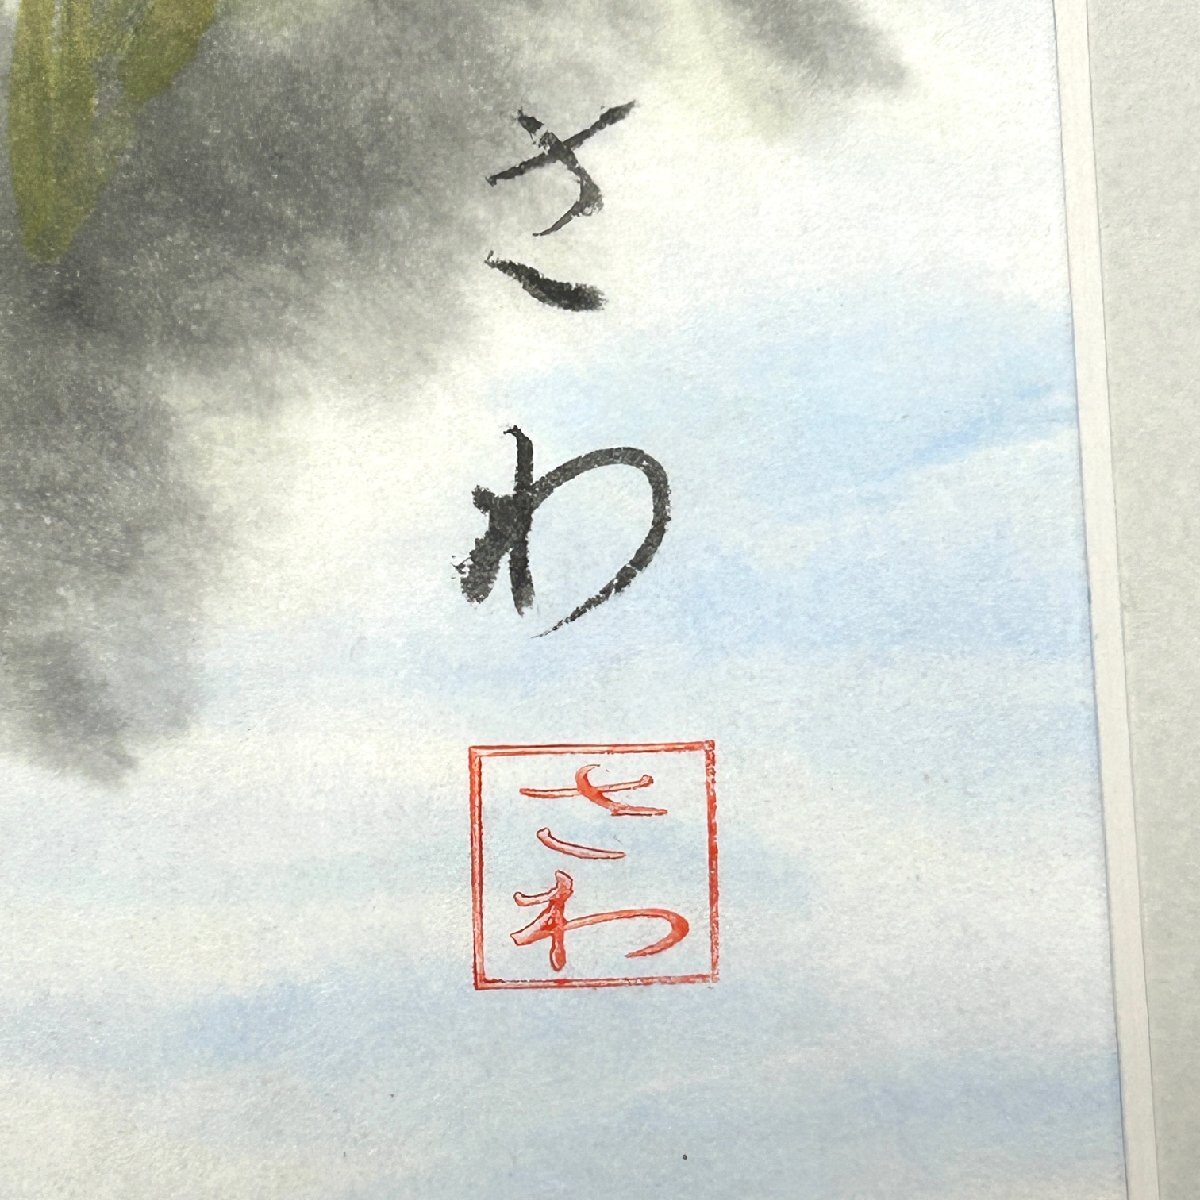 さわ
さわ